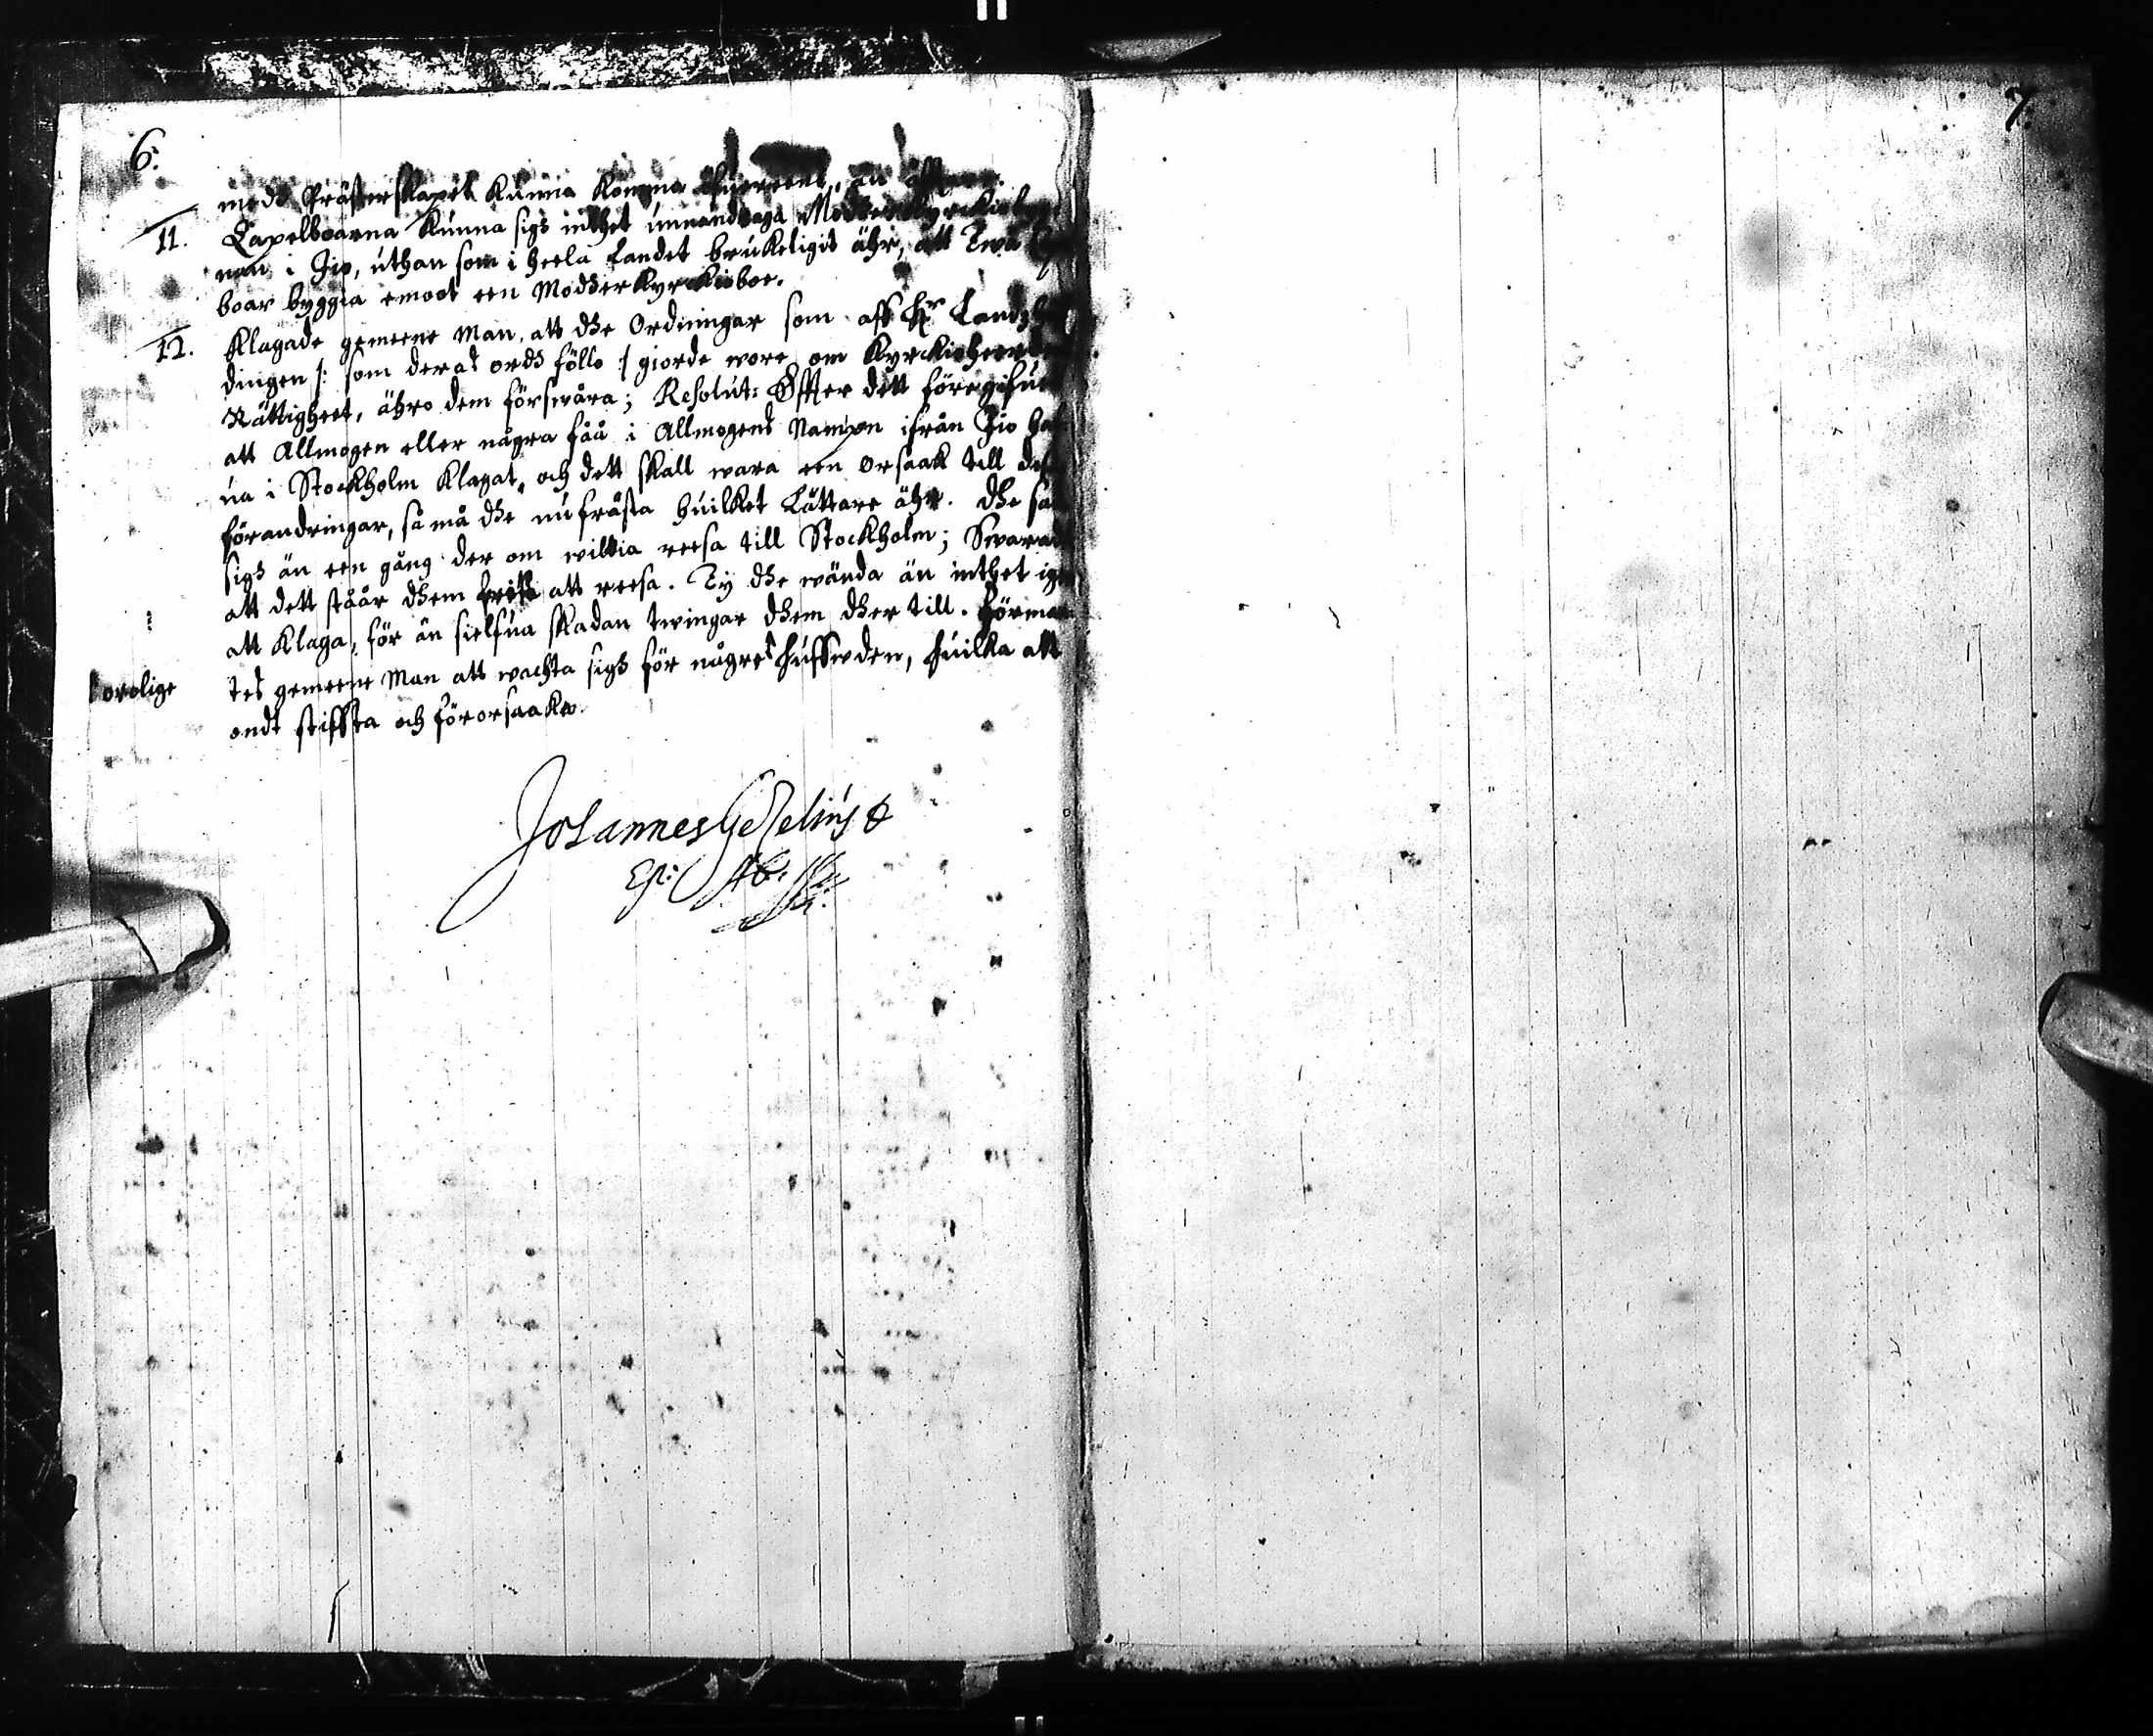 6.
7.
medh Prästerskapet kunna komma öfwereens, än
11. Capelboarna kunna sigh inthet undandraga Moderkyrkios
nan i Jio, uthan som i heela Landet brukeligit ähr, att Twå
boar byggia emoot een Moderkyrckioboe.
12. Klagade gemeene Man, att dhe Ordningar som aff Hr Landzhöf
dingen /: som deras ordh föllo :/ giorde wore om Kyrckioheerdens
Rättigheet, ähro dem förswåra; Resolut: Effter dett föregifues
att Allmogen eller någre fåå i Allmogens Nampn ifrån Jio haf
ua i Stockholm klagat, och dett skall wara een orsaak till
förandringar, så må dhe nu frästa huilket Lättare ähr. Dhe
sigh än een gång der om willia reesa till Stockholm; Swarades
att dett ståår dhem fritt att reesa. Ty dhe wända än inthet igen
att klaga, för än sielfua skadan twingar dhem dher till. Förman
orolige
tes gemeene Man att wachta sigh för någres hufwden, huilka allt
ondt stiffta och förorsaka.
Johannes Gezelius
Ep: Ab: